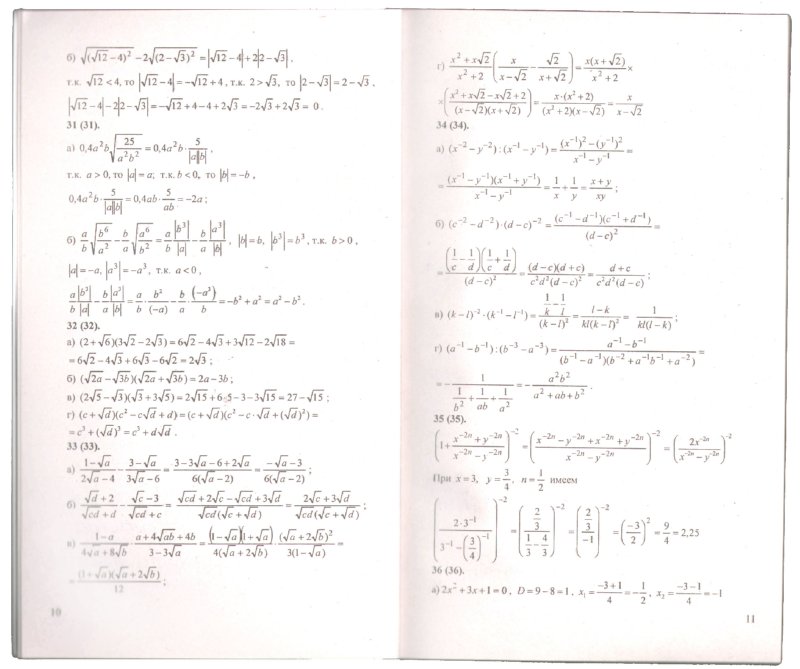 б) √(√12−4)² −2√(2−√3)² = |√12−4|+2|2−√3| ,
т.к. √12 < 4, то |√12−4| = −√12+4 , т.к. 2 > √3, то |2−√3| = 2−√3 ,
|√12−4|−2|2−√3| = −√12+4−4+2√3 = −2√3+2√3 = 0 .
31 (31).
а) 0,4a²b√(25/(a²b²)) = 0,4a²b · 5/|a||b| ,
т.к. a > 0, то |a| = a; т.к. b < 0, то |b| = −b ,
0,4a²b · 5/|a||b| = 0,4ab · 5/ab = −2a ;
б) a/b √(b⁶/a²) − b/a √(a⁶/b²) = a/b |b³|/|a| − b/a |a³|/|b| , |b| = b, |b³| = b³ , т.к. b > 0 ,
|a| = −a, |a³| = −a³ , т.к. a < 0 ,
a/b |b³|/|a| − b/a |a³|/|b| = a/b · b³/(−a) − b/a · (−a³)/b = −b² + a² = a² − b² .
32 (32).
а) (2+√6)(3√2−2√3) = 6√2−4√3+3√12−2√18 =
= 6√2−4√3+6√3−6√2 = 2√3 ;
б) (√2a−√3b)(√2a+√3b) = 2a−3b ;
в) (2√5−√3)(√3+3√5) = 2√15+6·5−3−3√15 = 27−√15 ;
г) (c+√d)(c²−c√d+d) = (c+√d)(c²−c·√d+(√d)²) =
= c³+(√d)³ = c³+d√d .
33 (33).
а) (1−√a)/(2√a−4) − (3−√a)/(3√a−6) = (3−3√a−6+2√a)/(6(√a−2)) = (−√a−3)/(6(√a−2)) ;
б) (√d+2)/(√cd+d) − (√c−3)/(√cd+c) = (√cd+2√c−√cd+3√d)/(√cd(√c+√d)) = (2√c+3√d)/(√cd(√c+√d)) ;
в) (1−a)/(4√a+8√b) · (a+4√ab+4b)/(3−3√a) = (1−√a)(1+√a)/(4(√a+2√b)) · (√a+2√b)²/(3(1−√a)) =
= (1+√a)(√a+2√b)/12 ;
10
г) (x²+x√2)/(x²+2) (x/(x−√2) − √2/(x+√2)) = x(x+√2)/(x²+2) ×
×((x²+x√2−x√2+2)/((x−√2)(x+√2))) = x·(x²+2)/((x²+2)(x−√2)) = x/(x−√2)
34 (34).
а) (x⁻²−y⁻²) : (x⁻¹−y⁻¹) = ((x⁻¹)²−(y⁻¹)²)/(x⁻¹−y⁻¹) =
= (x⁻¹−y⁻¹)(x⁻¹+y⁻¹)/(x⁻¹−y⁻¹) = 1/x + 1/y = (x+y)/xy ;
б) (c⁻²−d⁻²)·(d−c)⁻² = (c⁻¹−d⁻¹)(c⁻¹+d⁻¹)/(d−c)² =
= (1/c − 1/d)(1/c + 1/d)/(d−c)² = (d−c)(d+c)/(c²d²(d−c)²) = (d+c)/(c²d²(d−c)) ;
в) (k−l)⁻²·(k⁻¹−l⁻¹) = (1/k − 1/l)/(k−l)² = (l−k)/(kl(k−l)²) = 1/(kl(l−k)) ;
г) (a⁻¹−b⁻¹) : (b⁻³−a⁻³) = (a⁻¹−b⁻¹)/((b⁻¹−a⁻¹)(b⁻²+a⁻¹b⁻¹+a⁻²)) =
= −1/(1/b² + 1/ab + 1/a²) = −a²b²/(a²+ab+b²) .
35 (35).
(1+(x⁻²ⁿ+y⁻²ⁿ)/(x⁻²ⁿ−y⁻²ⁿ))⁻² = ((x⁻²ⁿ−y⁻²ⁿ+x⁻²ⁿ+y⁻²ⁿ)/(x⁻²ⁿ−y⁻²ⁿ))⁻² = (2x⁻²ⁿ/(x⁻²ⁿ−y⁻²ⁿ))⁻²
При x = 3, y = 3/4, n = 1/2 имеем
(2·3⁻¹/(3⁻¹−(3/4)⁻¹))⁻² = ((2/3)/(1/3 − 4/3))⁻² = ((2/3)/−1)⁻² = (−3/2)² = 9/4 = 2,25
36 (36).
а) 2x²+3x+1 = 0 , D = 9−8 = 1 , x₁ = (−3+1)/4 = −1/2 , x₂ = (−3−1)/4 = −1
11